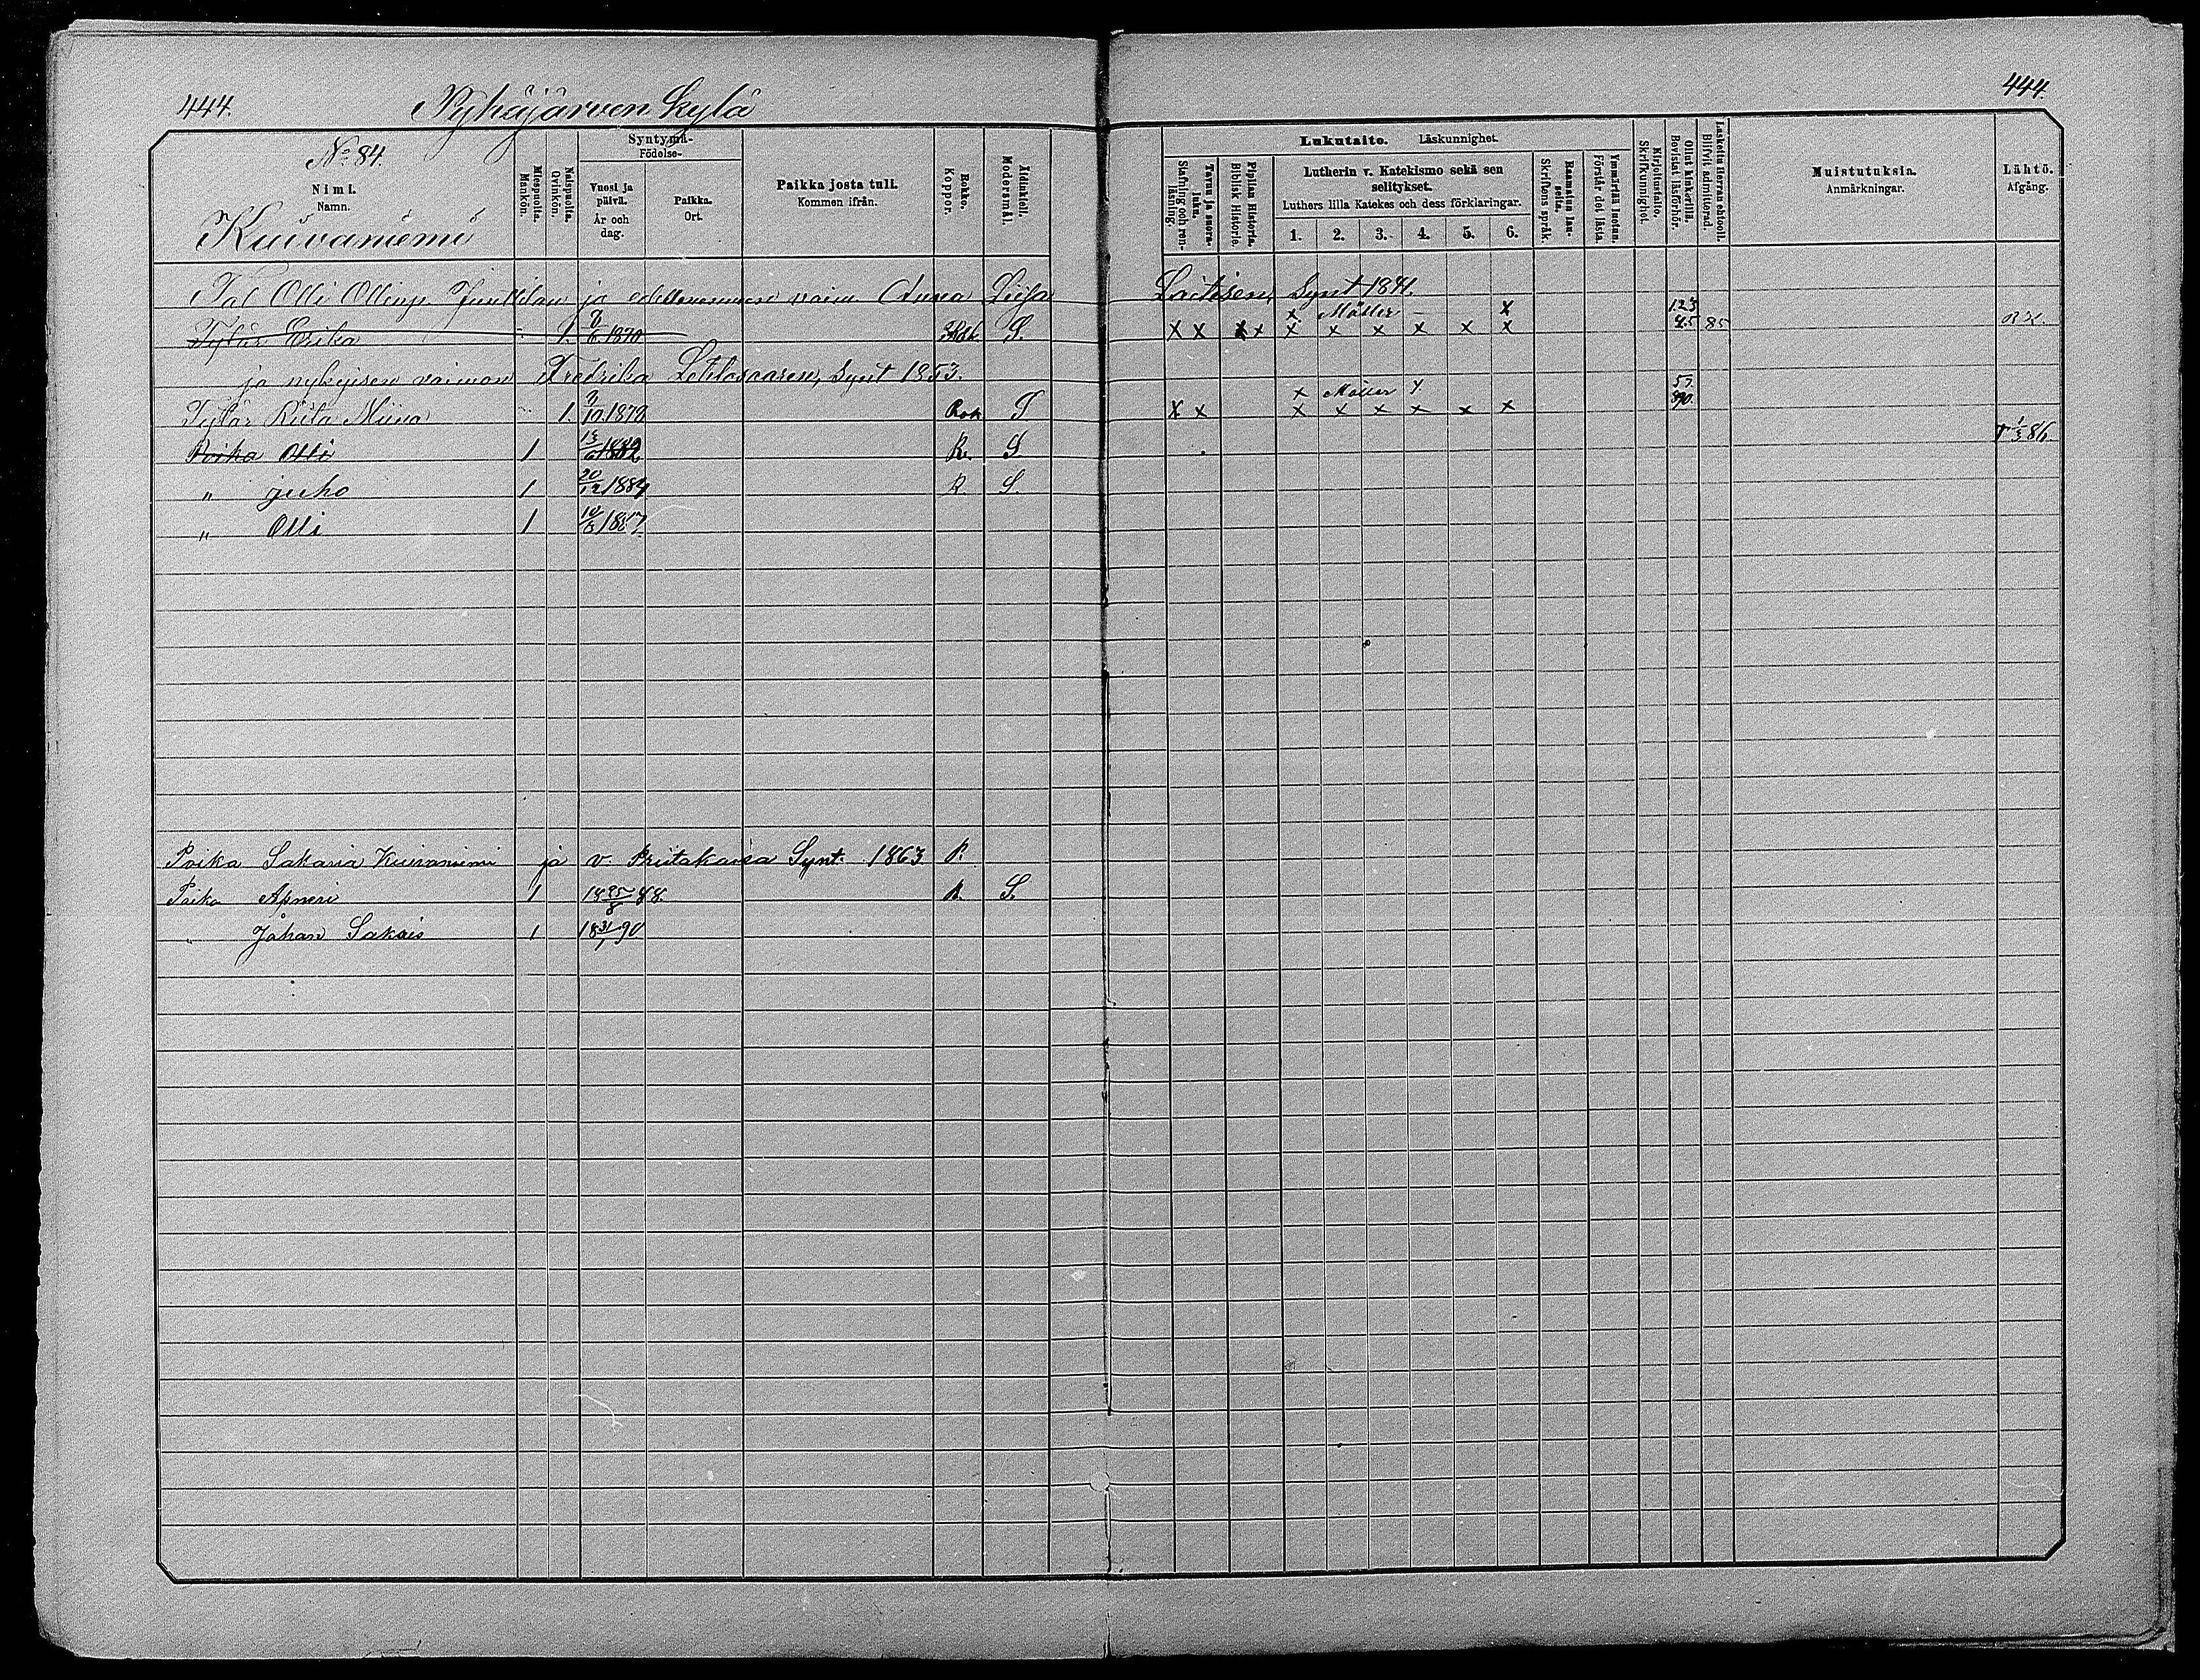 444.
Pyhäjärven kylä
444.
No 84.
Nimi.
Namn.
Kuivaniemi
Miespuolia.
Mankön.
Naispuolia.
Qvinkön.
Syntymä-
Födelse-
Vuosi ja päivä.
År och dag.
Paikka.
Ort.
Paikka josta tuli.
Kommen ifrån.
Rokko.
Koppor.
Äidinkieli.
Modersmål.
Lukutaito. Läskunnighet.
Tavuu ja suora-luku.
Stafning och ren-läsning.
Piplian Historia.
Biblisk Historie.
Lutherin v. Katekismo sekä sen selitykset.
Luthers lilla Katekes och dess förklaringar.
1. 2. 3. 4. 5. 6.
Raamatun lau-seita.
Skriftens språk.
Ymmärtää luetun.
Förstår det lästa.
Kirjoitustaito.
Skrifkunnighet.
Ollut kinkerillä.
Bevistat läsförhör.
Laskettu Herran ehtooll.
Blifvit admitterad.
Muistutuksia.
Anmärkningar.
Lähtö.
Afgång.
Tal Olli Ollinp. Junttilan ja edellmennen vaim. Anna Liisa Laitisen, Synt 1841.
x Möller — x 123
Tytär Erika 1. 8/6 1870 Rok. S. x x x x x x x x x x 45 85
ja nykyisen vaimon Fredrika Lehtosaaren, Synt 1853.
x Möller 4 57.
Tytär Riita Miina 1. 9/10 1879 Rok S x x x x x x x x 890.
Poika Olli 1 13/6 1882 R. S 1/3 86
" juho 1 20/12 1884 R. S.
" Olli 1 10/6 1887
Poika Sakaria Kuivaniemi ja v. Priitakaisa Synt. 1863 R.
Poika Apneri 1 18 25/8 88. R. S.
" Johan Sakais 1 18 31/1 90